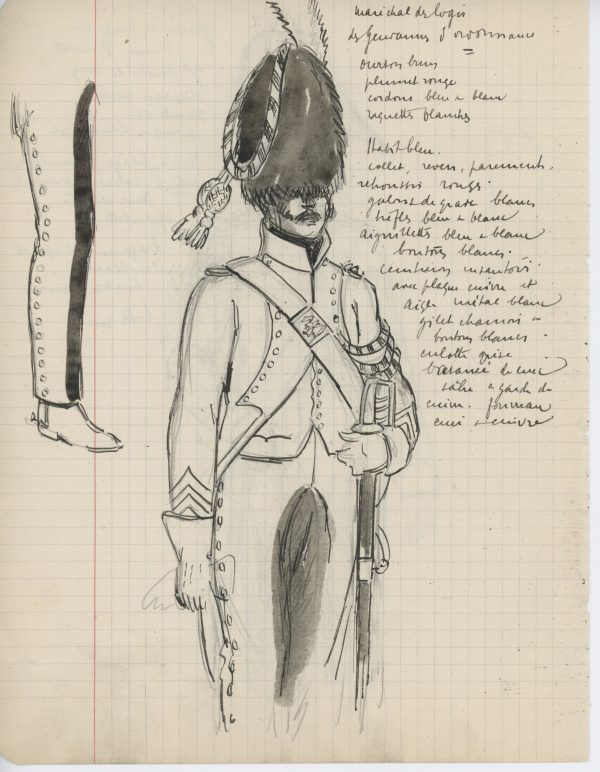 maréchal des logis
des Gendarmes d'ordonnance
ourson brun
plumet rouge
cordons bleu & blanc
raquettes blanches
Habit bleu.
collet, revers, parements,
retroussis rouges.
galons de grade blancs
trèfles bleu & blanc
aiguillettes bleu & blanc
boutons blancs.
ceinturon
avec plaque cuivre et
aigle métal blanc
gilet chamois &
boutons blancs.
culotte grise
basanée de cuir
sabre & garde de
cuivre. fourreau
cuir & cuivre